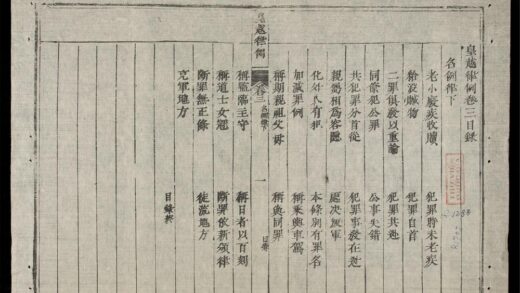 皇越律例卷三目錄
名例律下
老小廢疾收贖　犯罪時未老疾
給沒贓物　犯罪自首
二罪俱發以重論　犯罪共逃
同僚犯公罪　公事失錯
共犯罪分首從　犯罪事發在逃
親屬相爲容隱　處决叛軍
化外人有犯　本條別有罪名
加減罪例　稱乘輿車駕
稱期親祖父母　稱與同罪
皇越律例　卷三　名例律下　一　目錄
稱監臨主守　稱日者以百刻
稱道士女冠　斷罪依新頒律
斷罪無正條　徒流地方
充軍地方
目錄終